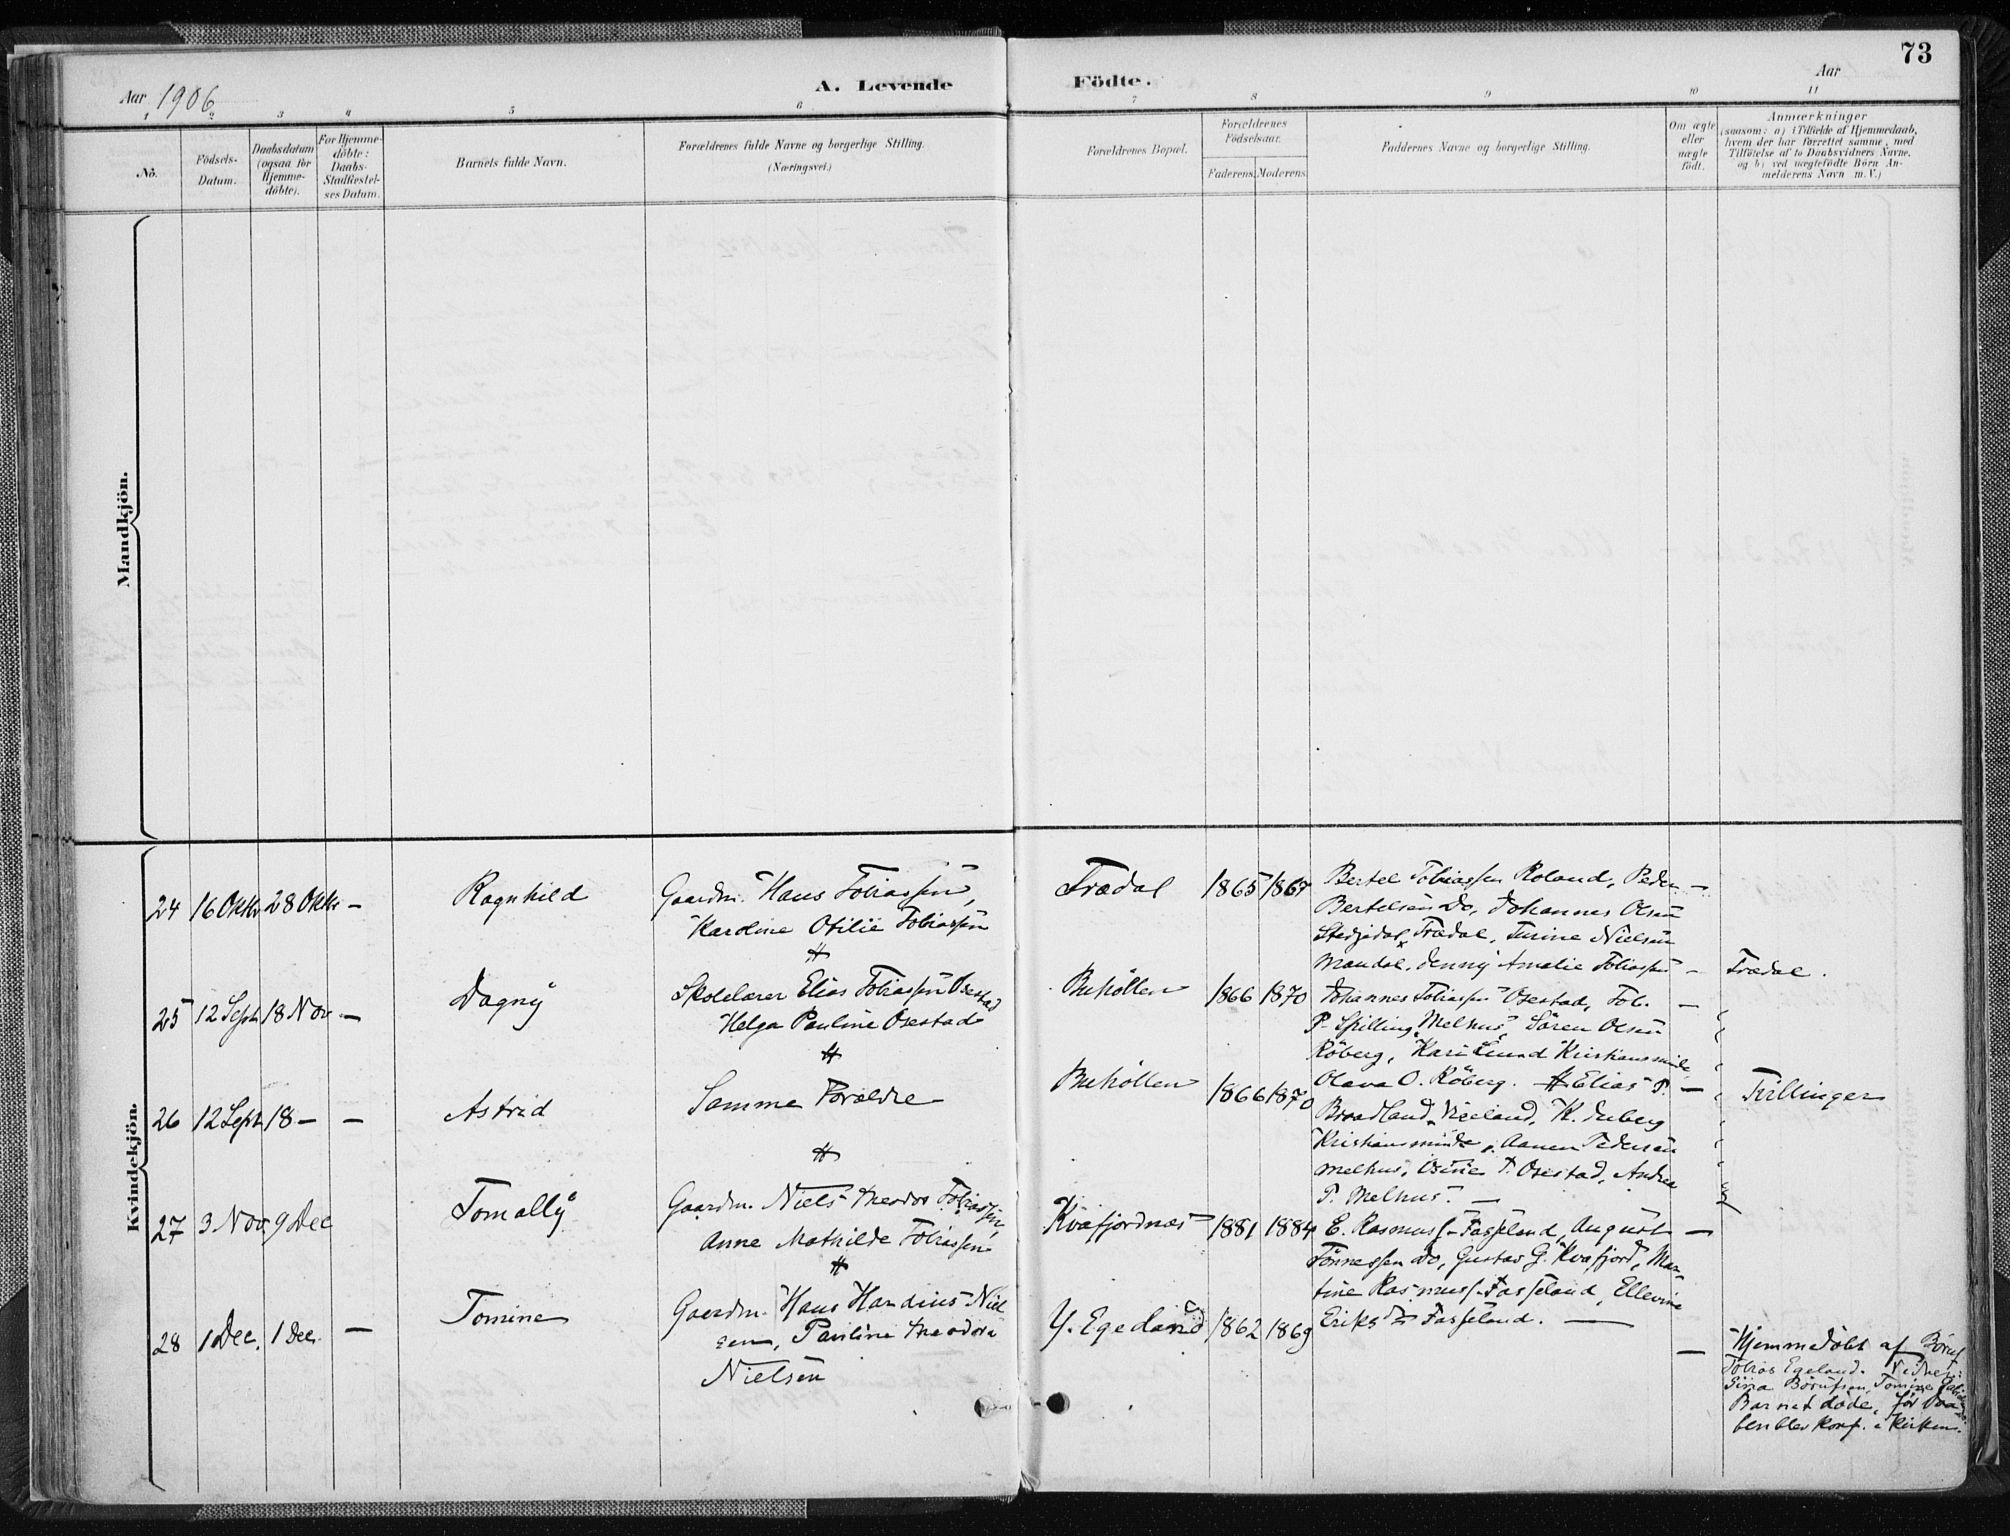 73
Aar 1906
A. Levende Födte.
Aar
1 2 3 4 5 6 7 8 9 10 11
No.
Födsels-Datum.
Daabsdatum (ogsaa for Hjemme-döbte).
For Hjemme-döbte: Daabs-Stadfæstel-ses Datum.
Barnets fulde Navn.
Forældrenes fulde Navne og borgerlige Stilling.
(Næringsvei.)
Forældrenes Bopæl.
Forældrenes Födselsaar.
Faderens. Moderens.
Faddernes Navne og borgerlige Stilling.
Om ægte eller uægte födt.
Anmærkninger
(saasom: a) i Tilfælde af Hjemmedaab,
hvem der har forrettet samme, med
Tilföielse af to Daabsvidners Navne,
og b) ved uægtefödte Börn An-
melderens Navn m. V.)
Mandkjön.
Kvindekjön.
24 16 Oktr 28 Oktr — Ragnhild
Gaardm. Hans Tobiassen,
Karoline Otilie Tobiassen
Trædal 1865 1867
Bertel Tobiassen Roland, Peder —
Bertelsen Do, Johannes Olsen
Stedjedal, Trædal, Turine Nielsen
Mandal, Jenny Amalie Tobiassen —
Trædal.
25 12 Septr 18 Nov — Dagny
Skolelærer Elias Tobiassen Osestad
Helga Pauline Osestad
Buhöllen 1866 1870
Johannes Tobiassen Osestad, Tob. —
P. Spilling, Melhus, Sören Olsen
Röberg, Kari Lund Kristiansminde,
Olava O. Röberg.
26 12 Septr 18 — — Astrid
Samme Forældre
Buhöllen 1866 1870
Elias T. —
Braadland, Vigeland, K.
Kristiansminde, Aanen Pedersen
Melhus, Osine T. Osestad, Andrea
P. Melhus. —
Tvillinger
27 3 Nov. 9 Dec Tomally
Gaardm. Niels Theodor Tobiassen,
Anne Mathilde Tobiassen
Kvafjordnæs 1881 1884
E. Rasmuss. Fasseland, August —
Tönnessen Do, Gustav G. Kvafjord, Mar-
tine Rasmuss. Fasseland, Ellevine
Eriksdtr Fasseland. —
28 1 Dec. 1 Dec. — Tomine
Gaardm. Hans Handius Niel
sen, Pauline Theodora
Nielsen
Y. Egeland 1862 1869
—
Hjemmedöbt af Böruf
Tobias Egeland. Vidner:
Gina Börufsen, Tomine
Barnet döde, för Daa
ben blev konf. i Kirken.